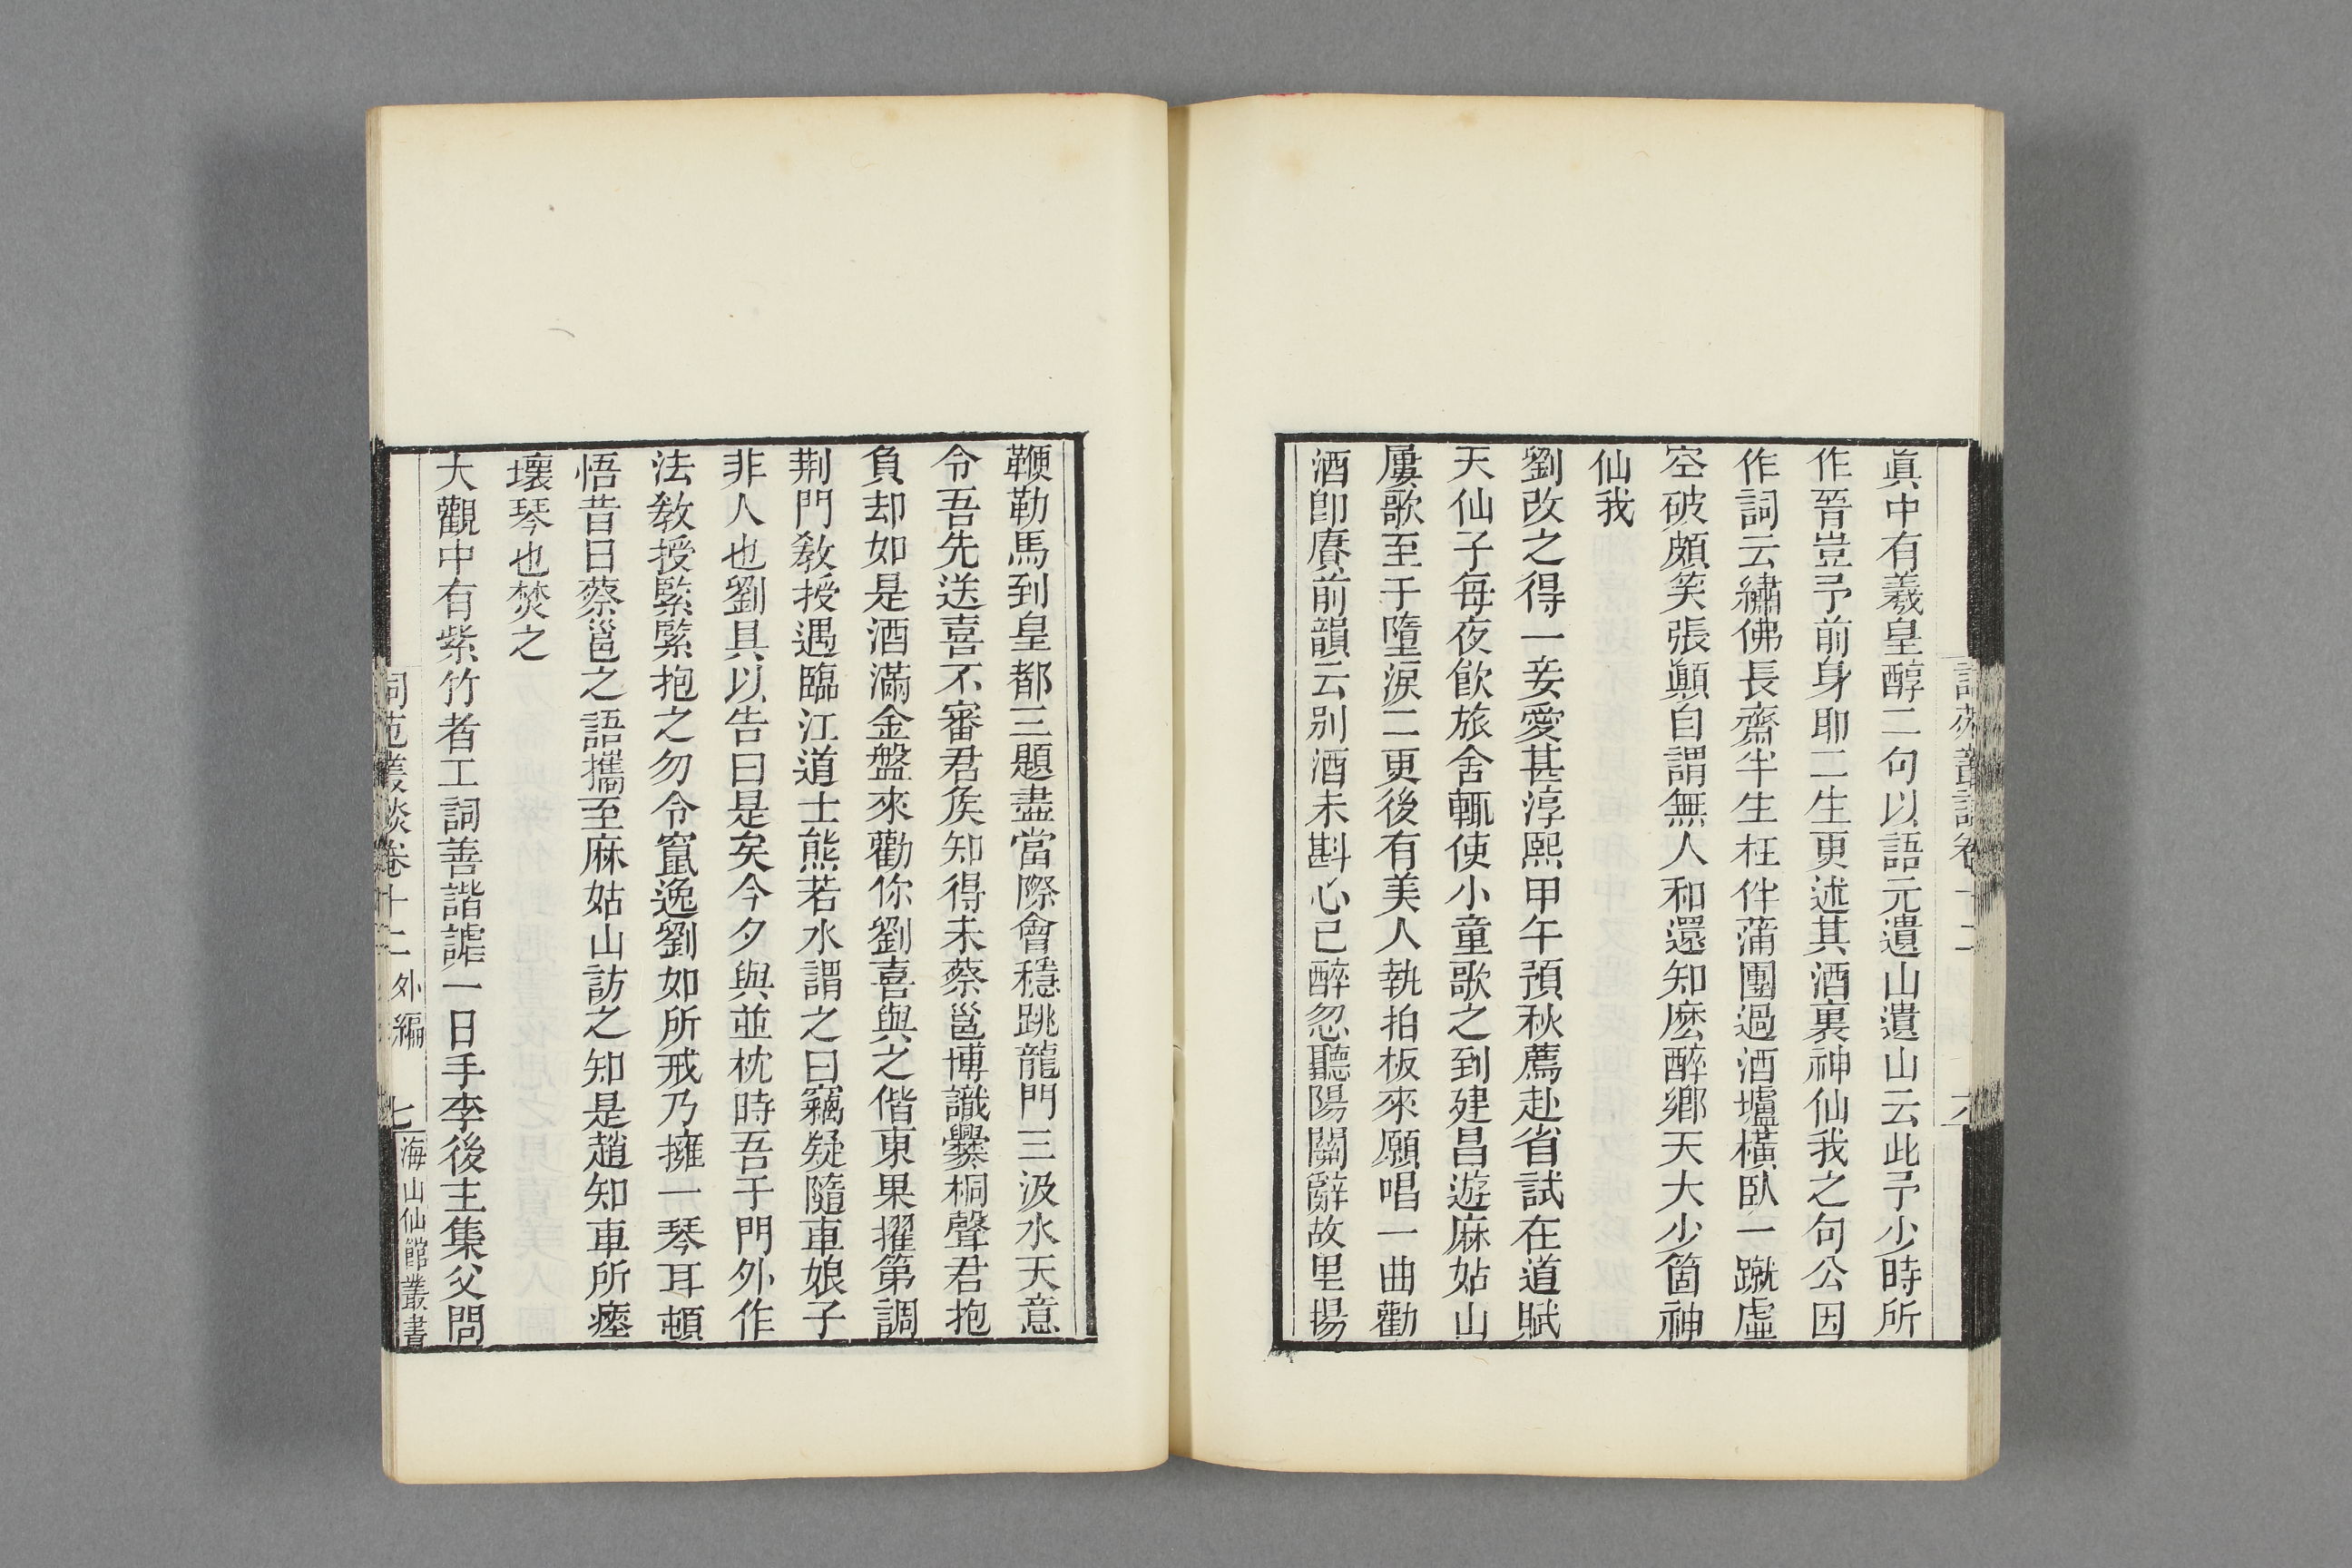 眞中有羲皇醇二句以語元遺山遺山云此予少時所
作晉豈予前身耶二生更述其酒裏神仙我之句公因
作詞云繡佛長齋半生枉伴蒲團過酒壚橫臥一蹴虛
空破頗笑張顚自謂無人和還知麽醉鄉天大少箇神
仙我
劉改之得一妾愛甚淳熙甲午預秋薦赴省試在道賦
天仙子每夜飮旅舍輒使小童歌之到建昌遊麻姑山
屢歌至于墮淚二更後有美人執拍板來願唱一曲勸
酒卽賡前韻云别酒未斟心已醉忽聽陽關辭故里揚
鞭勒馬到皇都三題盡當際會穩跳龍門三汲水天意
令吾先送喜不審君矦知得未蔡邕博識爨桐聲君抱
負却如是酒滿金盤來勸你劉喜與之偕東果擢第調
荆門敎授遇臨江道士熊若水謂之曰竊疑隨車娘子
非人也劉具以告曰是矣今夕與並枕時吾于門外作
法敎授緊緊抱之勿令竄逸劉如所戒乃擁一琴耳頓
悟昔日蔡邕之語攜至麻姑山訪之知是趙知車所瘞
壞琴也焚之
大觀中有紫竹者工詞善諧謔一日手李後主集父問
詞苑叢談卷十二 外編 七
海山仙館叢書